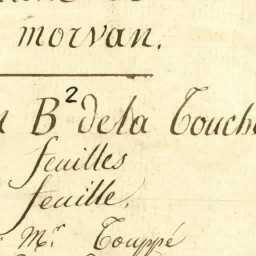 morvan.
B² de la Touch
feuilles
feuille.
Mr. Touppé